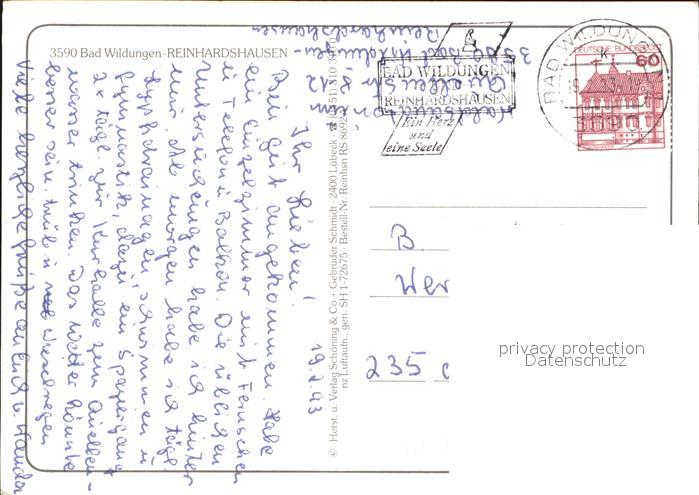 3590 Bad Wildungen-REINHARDSHAUSEN
3590 Bad Wildungen-
Reinhardshausen
BAD WILDUNGEN
REINHARDSHAUSEN
Ein Herz
und
eine Seele
BAD WILDUNGEN
DEUTSCHE BUNDESPOST
60
3590
19.2.83
Ihr Lieben!
Bin gut angekommen. Habe
ein Einzelzimmer mit Fernsehen
u Telefon u Balkon. Die üblichen
Untersuchungen habe ich hinter
mir. Ab morgen habe ich tägl.
schwimmen u
Gymnastik, dazu ein Spaziergang
2x tägl. zur Kurhalle zum Quellen-
wasser trinken. Das Wetter könnte
besser sein. trüb u Nieselregen
Viele herzliche Grüße an Euch u.
© Herst. u. Verlag Schöning & Co + Gebrüder Schmidt · 2400 Lübeck
Bestell-Nr. Reinhsn RS
nz Luftaufn.: gen. SH 1-72675
B
Wer
235
privacy protection
Datenschutz